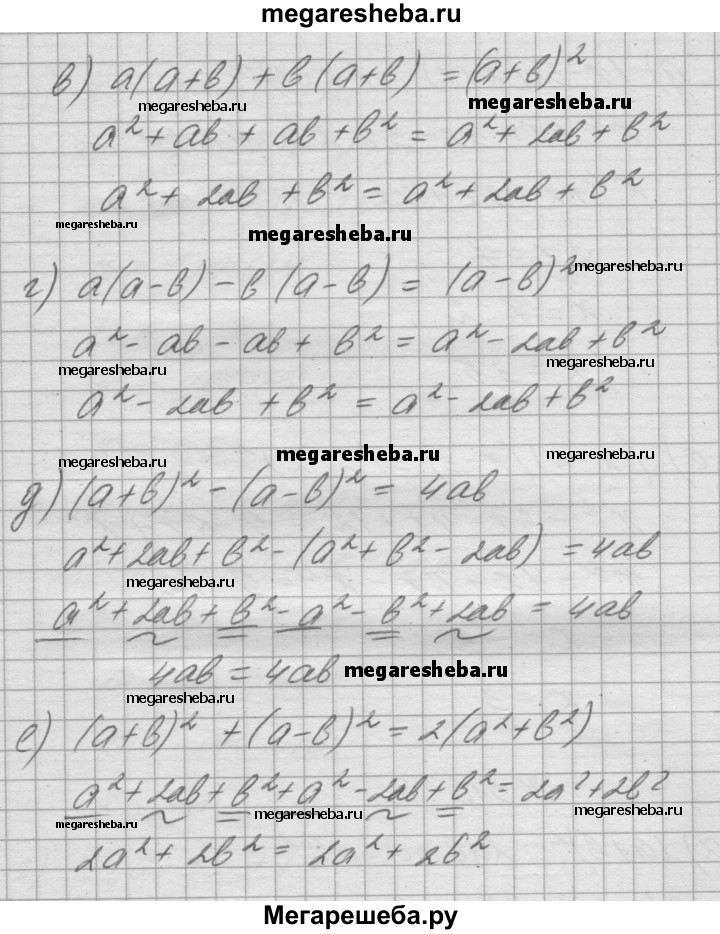 megaresheba.ru
в) a(a+в) + в(a+в) = (a+в)²
megaresheba.ru megaresheba.ru
a² + aв + aв + в² = a² + 2aв + в²
a² + 2aв + в² = a² + 2aв + в²
megaresheba.ru megaresheba.ru
г) a(a-в) - в(a-в) = (a-в)² megaresheba.ru
a² - aв - aв + в² = a² - 2aв + в²
megaresheba.ru megaresheba.ru
a² - 2aв + в² = a² - 2aв + в²
megaresheba.ru megaresheba.ru megaresheba.ru
д) (a+в)² - (a-в)² = 4aв
a² + 2aв + в² - (a² + в² - 2aв) = 4aв
megaresheba.ru megaresheba.ru
a² + 2aв + в² - a² - в² + 2aв = 4aв
4aв = 4aв megaresheba.ru
megaresheba.ru
е) (a+в)² + (a-в)² = 2(a²+в²)
a² + 2aв + в² + a² - 2aв + в² = 2a² + 2в²
megaresheba.ru megaresheba.ru megaresheba.ru
2a² + 2в² = 2a² + 2в²
Мегарешеба.ру